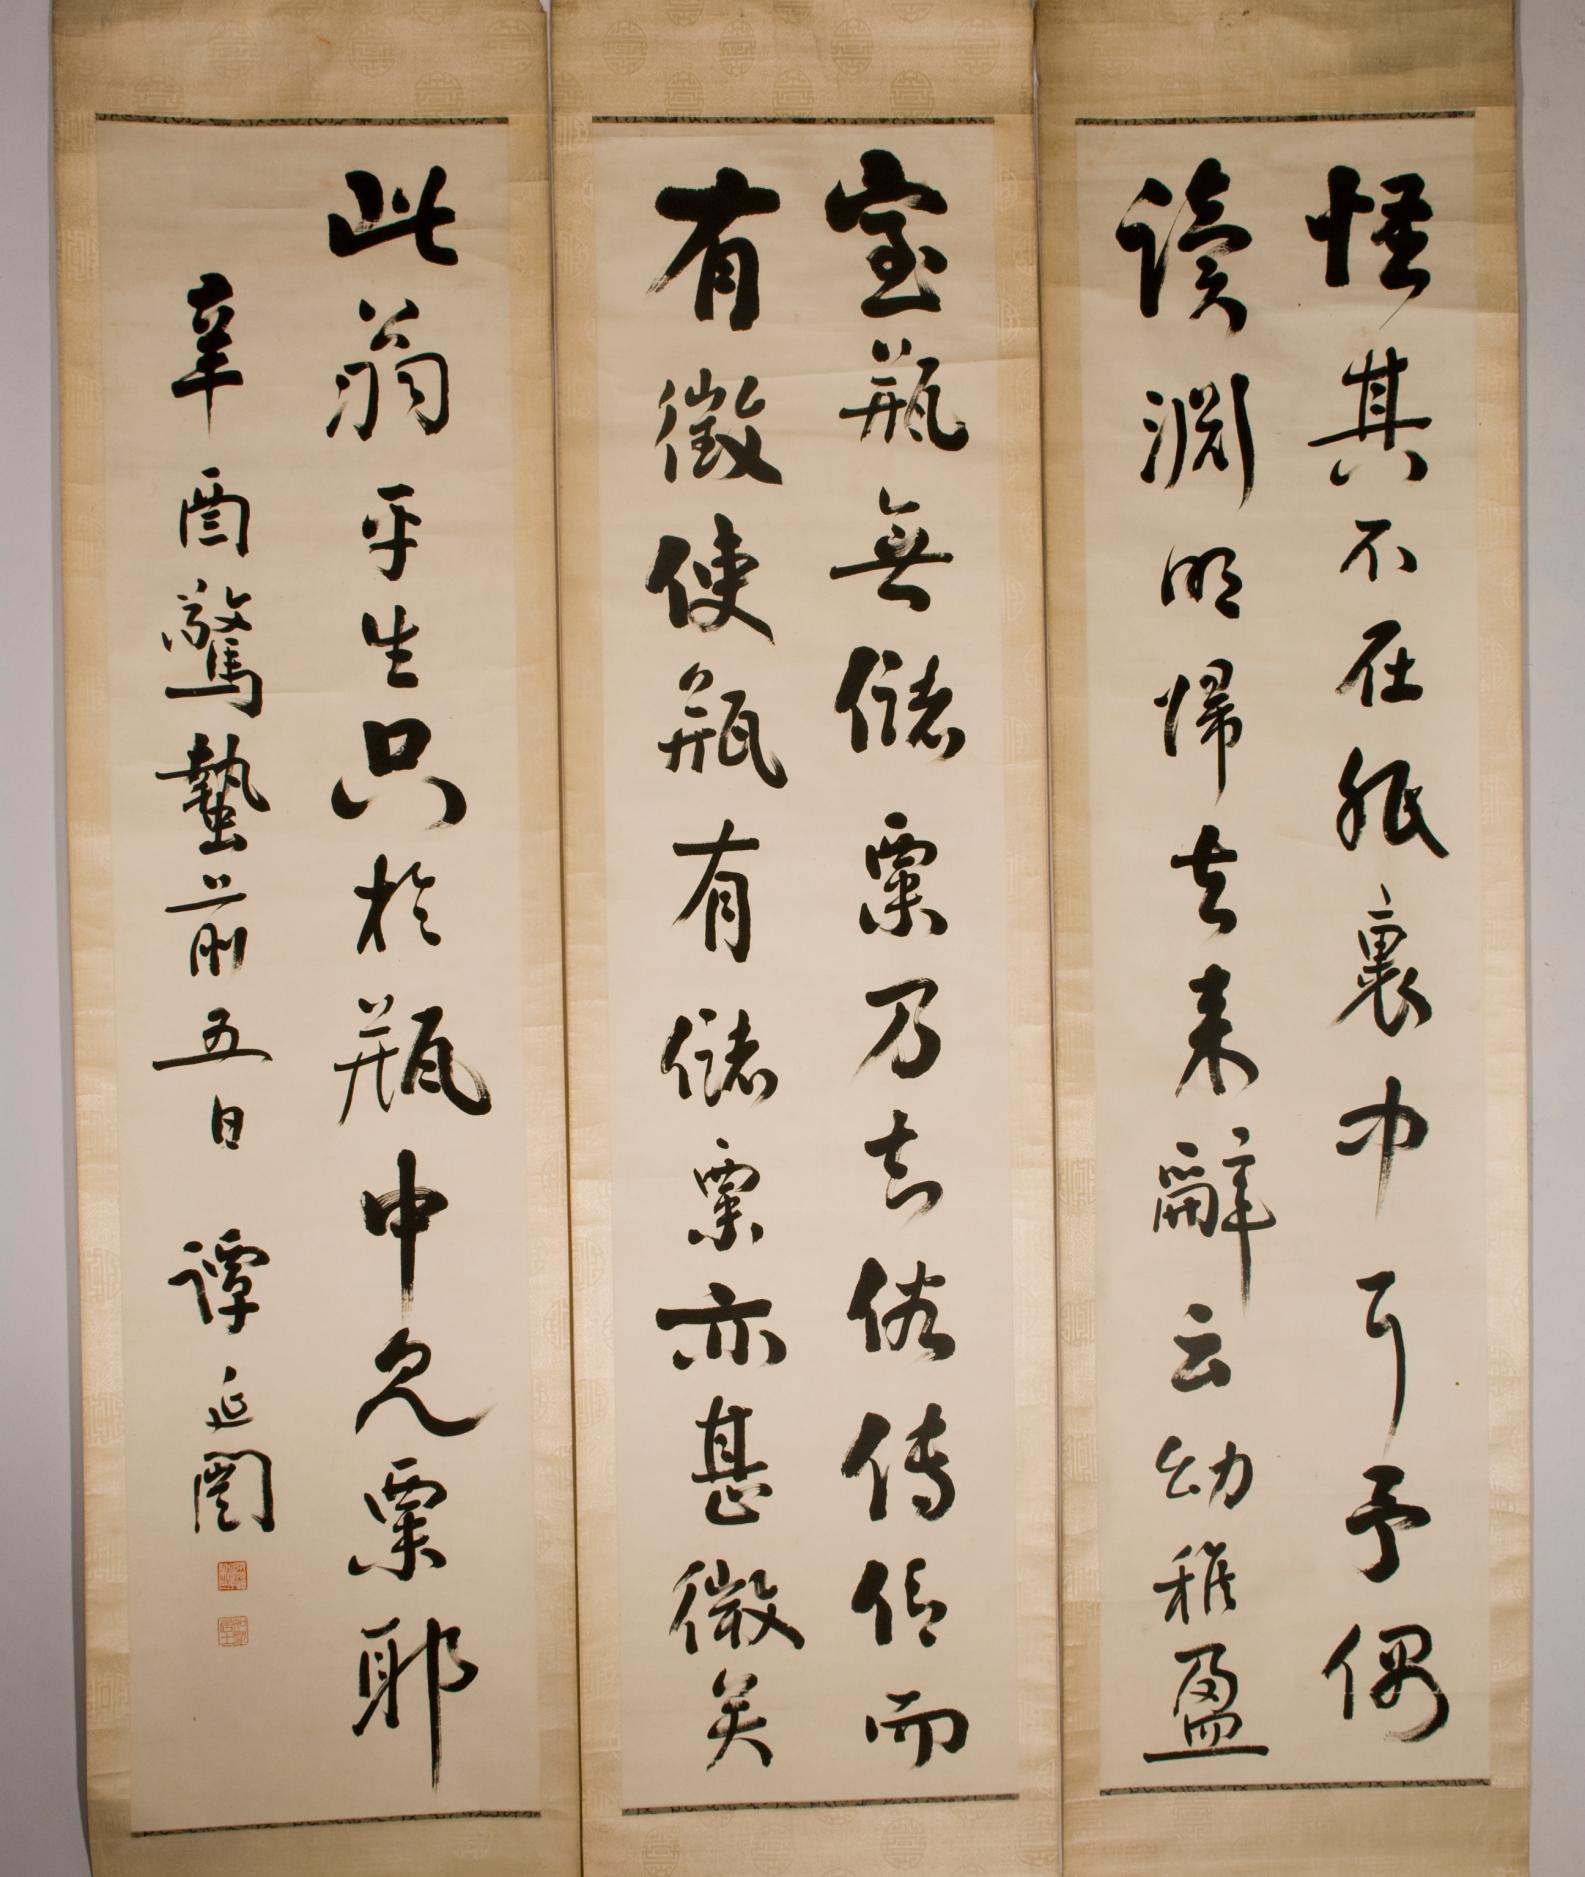 怪其不在紙裹中耳予偶
讀淵明歸去来辭云幼稚盈
室瓶無儲粟乃知俗傳信而
有徵使瓶有儲粟亦甚微矣
此翁平生只於瓶中見粟耶
辛酉驚蟄前五日 譚延闓